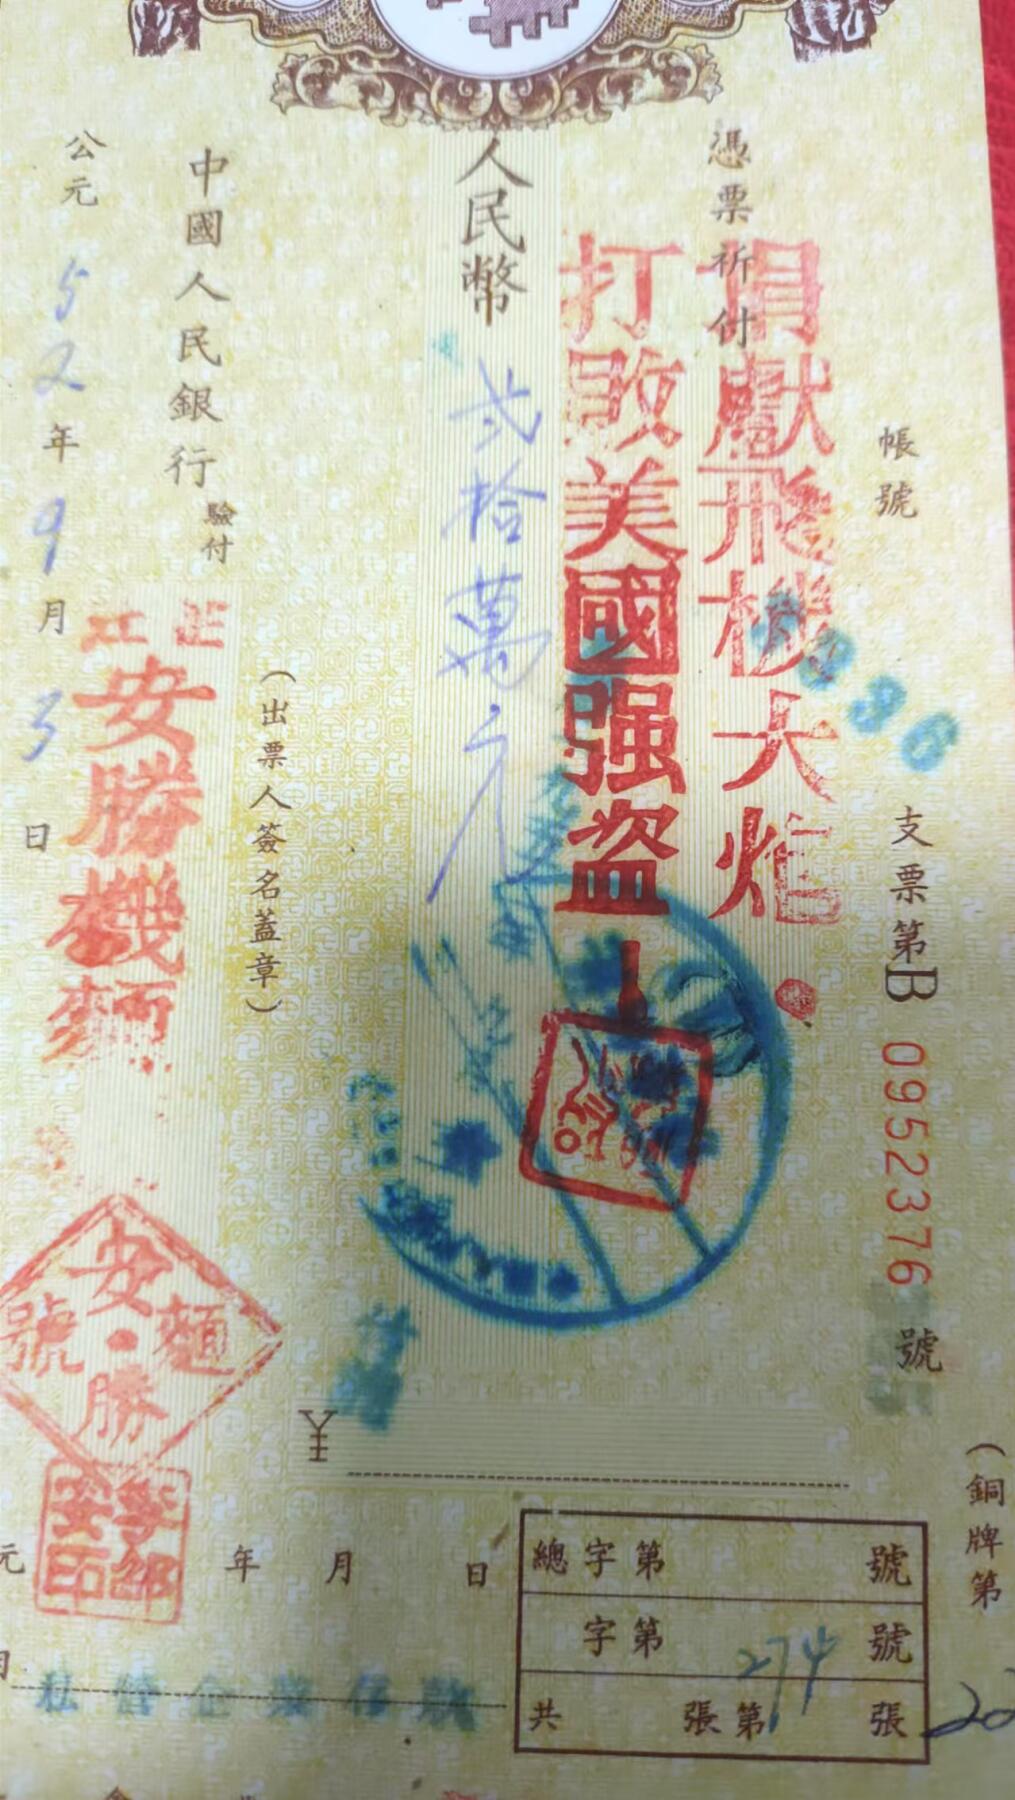 帳號
支票第B 0952376號
(銅牌第
憑票祈付
捐獻飛機大炮.
打敗美國强盗!
人民幣
貳拾萬元
(出票人簽名蓋章)
中國人民銀行
驗付
公元52年9月3日
安勝機麵
安·勝
麵號
李安邵印
¥
年 月 日
總字第 號
字第 274 號
共 張第 張
20
私營企業存款